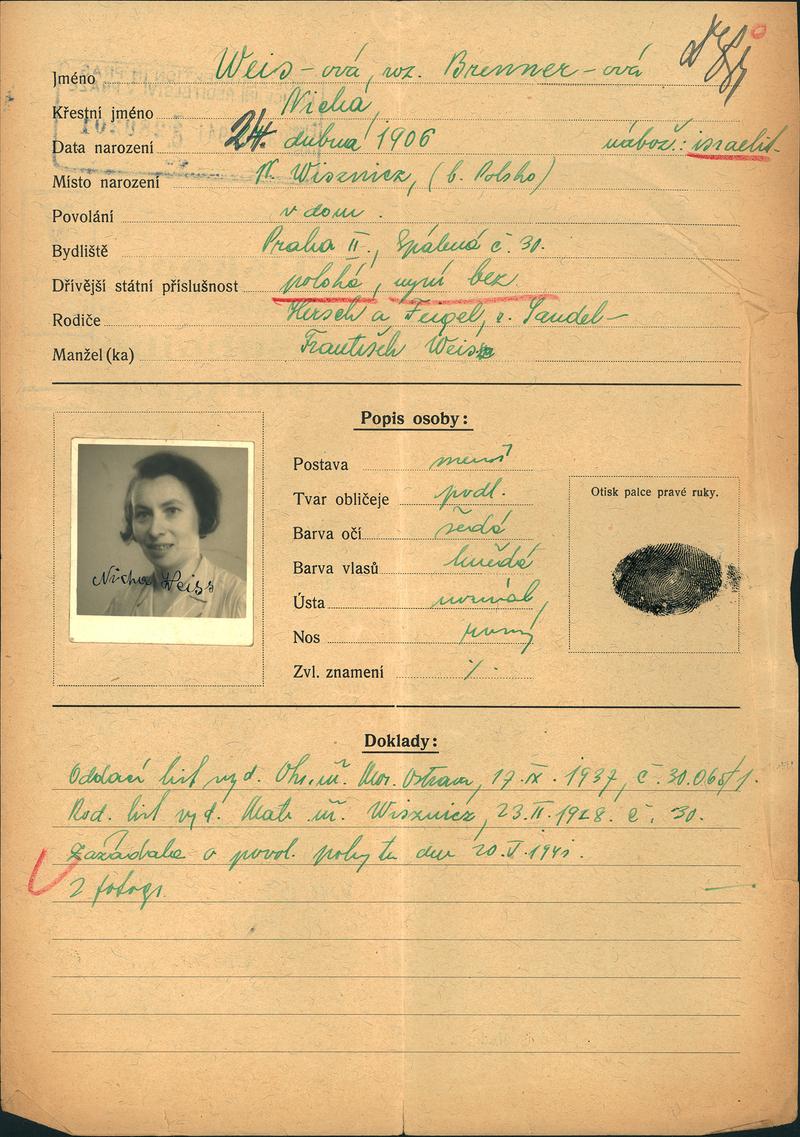 Jméno Weis-ová, roz. Brenner-ová
Křestní jméno Nicha
Data narození 24. dubna 1906 nábož.: israelit.
Místo narození N. Wisznicz, (b. Polsko)
Povolání v dom.
Bydliště Praha II., Spálená č. 30.
Dřívější státní příslušnost polská, nyní bez
Rodiče Hersch a Feigel, r. Sandel-
Manžel (ka) František Weiss
Popis osoby:
Postava menší
Tvar obličeje podl.
Barva očí šedá
Barva vlasů hnědá
Ústa normál
Nos rovný
Zvl. znamení /.
Otisk palce pravé ruky.
Nicha Weiss
Doklady:
Oddací list vyd. Okr. úř. Mor. Ostrava, 17. IX. 1937, č. 30.065/1.
Rod. list vyd. Matr. úř. Wisznicz, 23. II. 1928. č. 30.
Zažádala o povol. pobytu dne 20. V. 1941.
2 fotogr.